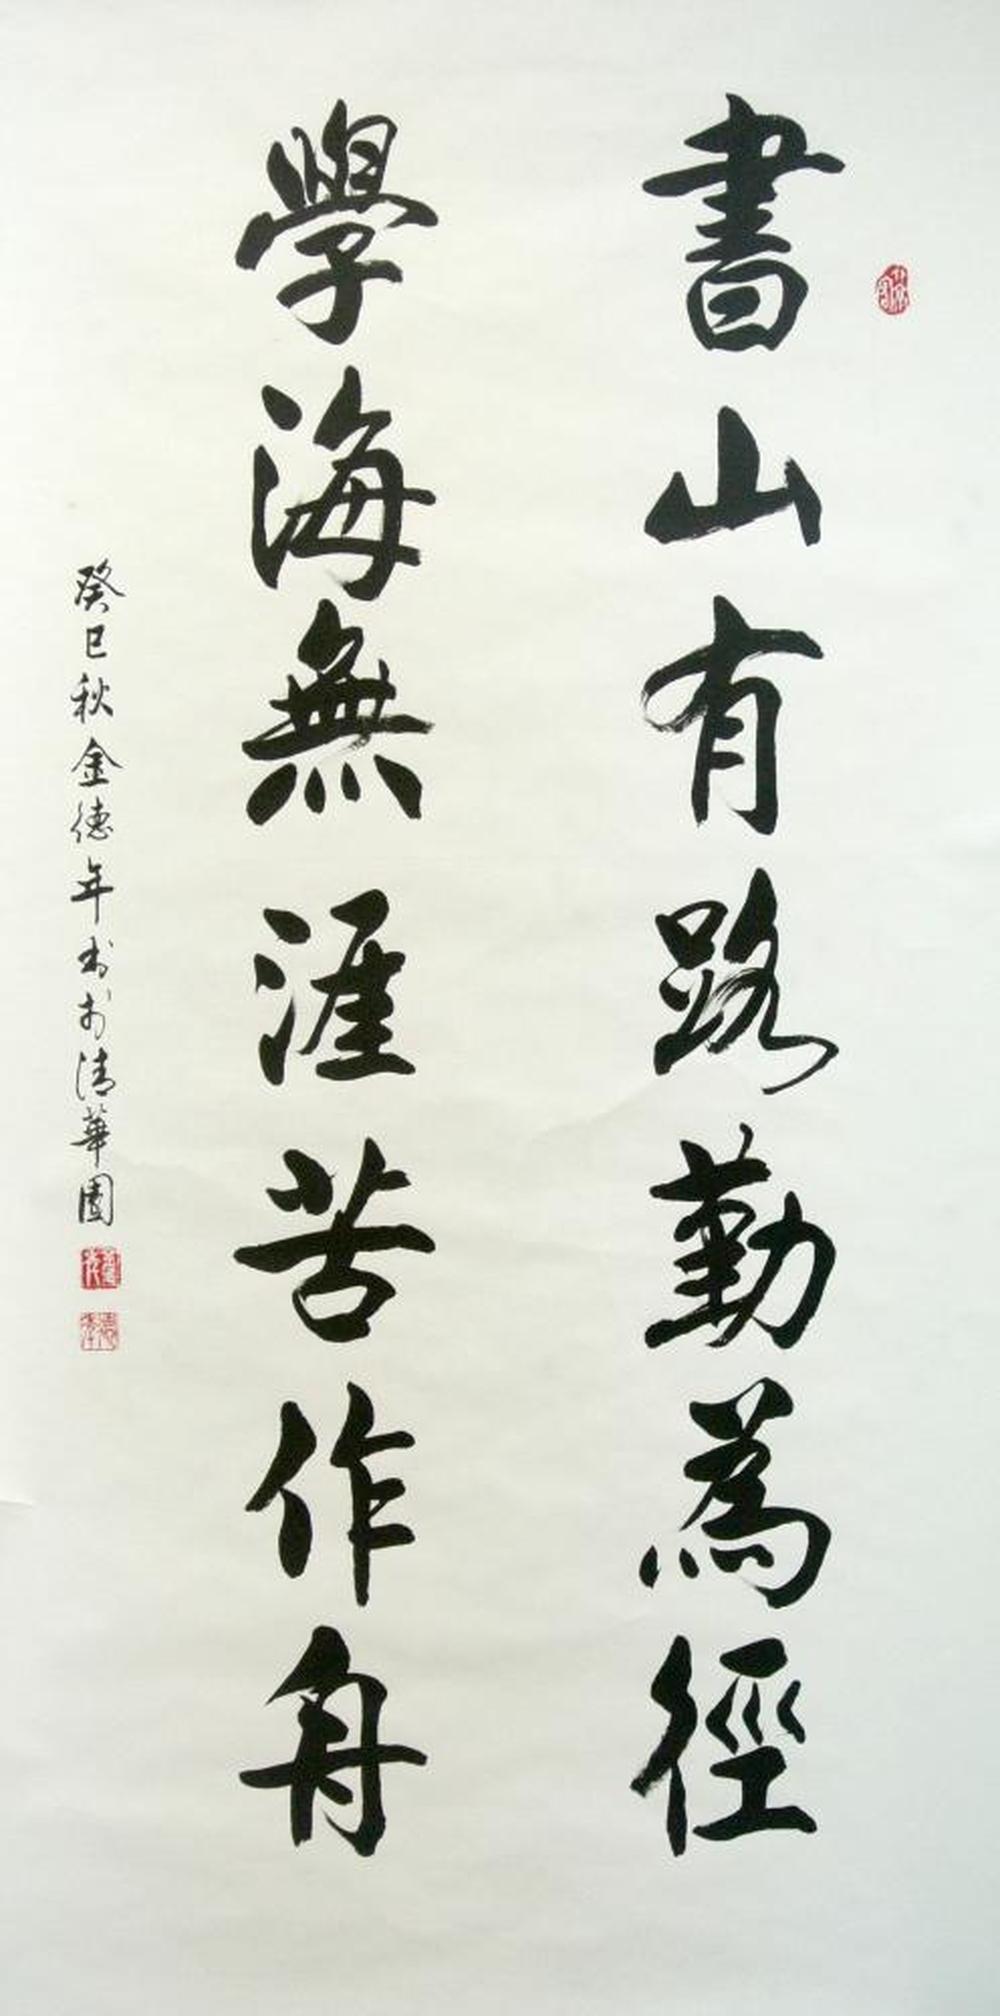 書山有路勤為徑
學海無涯苦作舟
癸巳秋金德年书於清華園